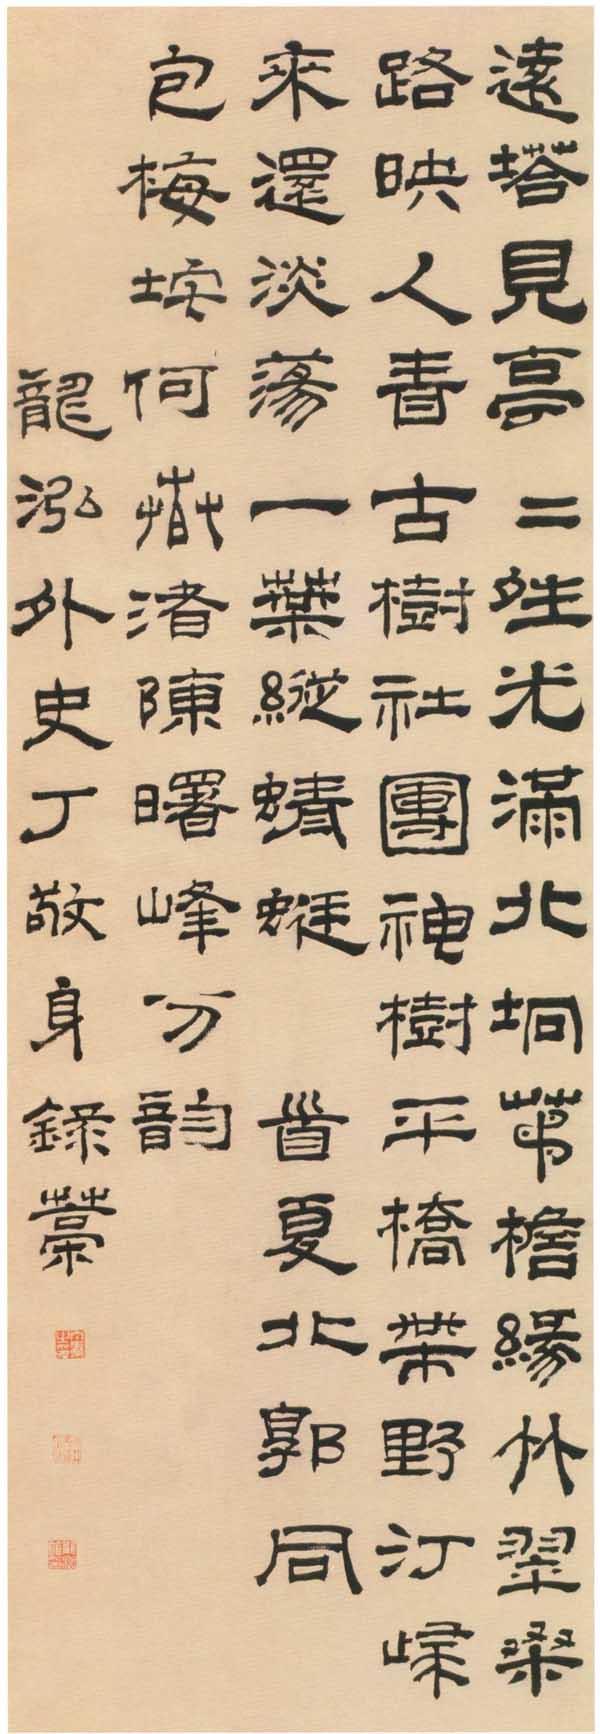 遠塔見亭二夝光滿北坰茅檐緣竹翠桑
路映人青古樹社團神樹平橋帶野汀歸
來還淡蕩一葉縱蜻蜓 首夏北郭同
包梅垞何春渚陳曙峰分韵
龍泓外史丁敬身錄藁